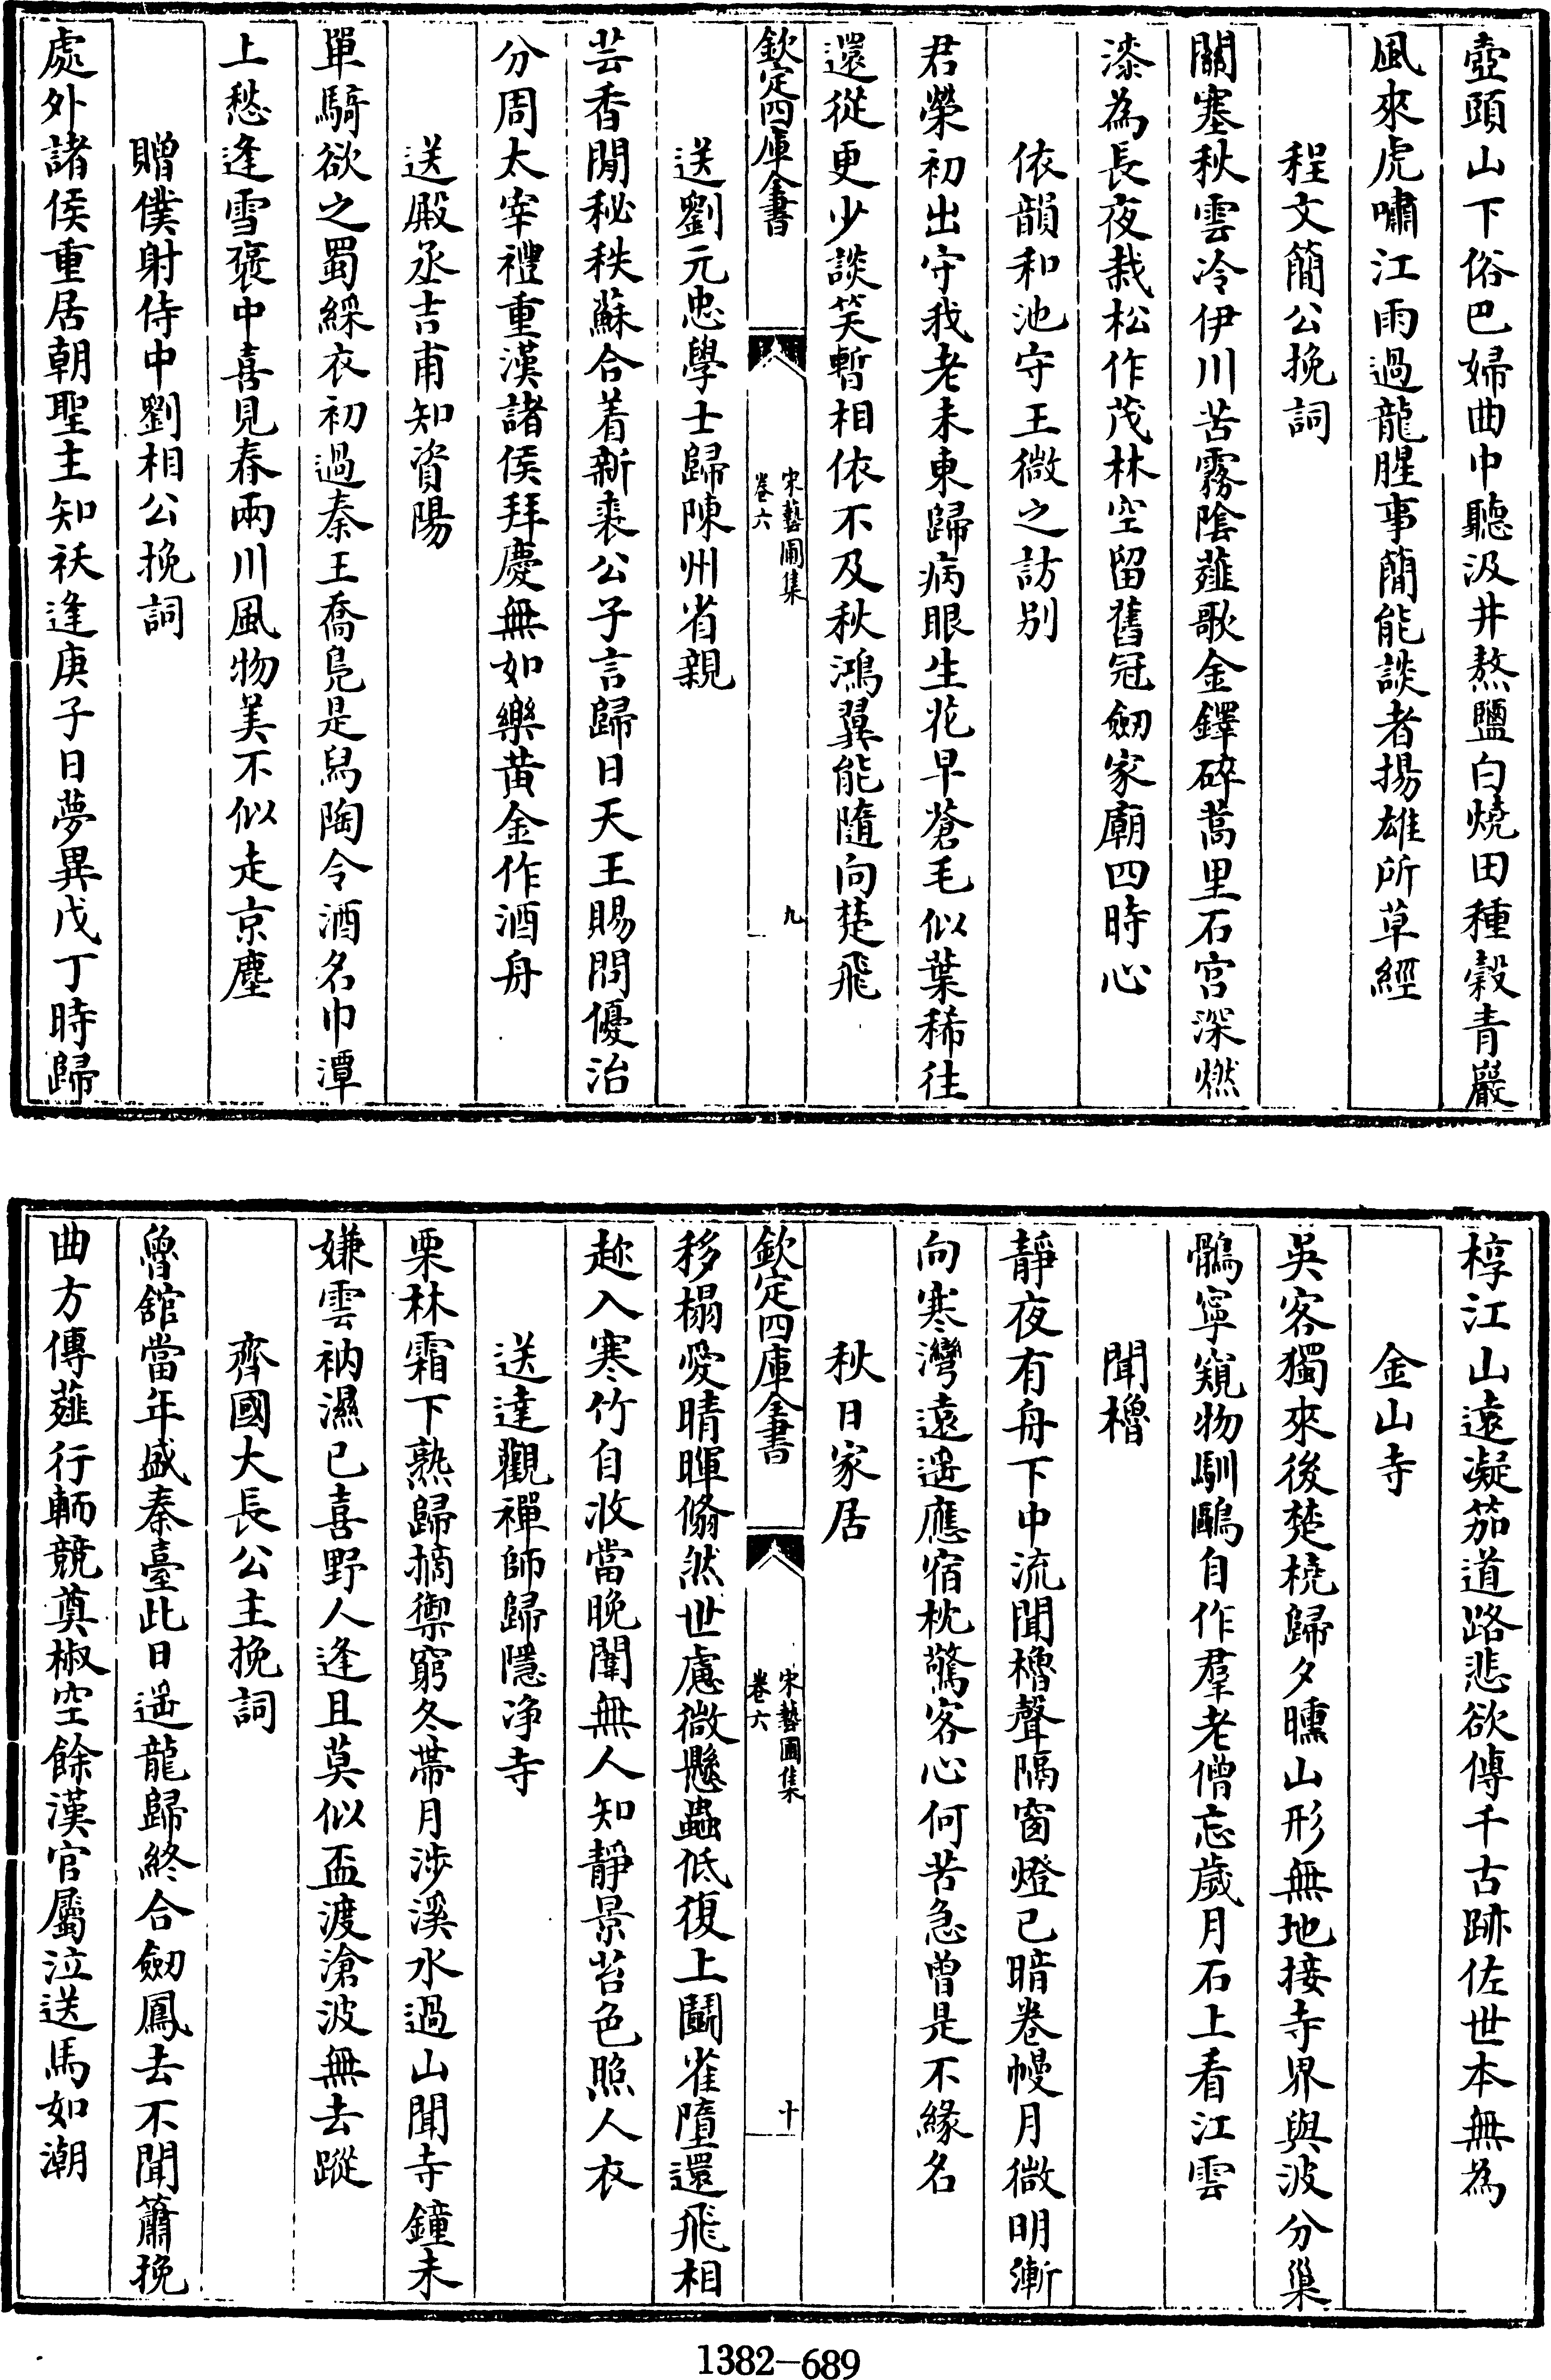 壺頭山下俗巴婦曲中聽汲井熬鹽白燒田種穀青巖
風來虎嘯江雨過龍腥事簡能談者揚雄所草經
程文簡公挽詞
關塞秋雲冷伊川苦霧陰薤歌金鐸碎蒿里石宮深燃
漆為長夜栽松作茂林空留舊冠劒家廟四時心
依韻和池守王微之訪別
君榮初出守我老未東歸病眼生花早蒼毛似葉稀往
還從更少談笑暫相依不及秋鴻翼能隨向楚飛
欽定四庫全書
宋藝圃集
卷六
九
送劉元忠學士歸陳州省親
芸香閒秘秩蘇合着新裘公子言歸日天王賜問優治
分周太宰禮重漢諸侯拜慶無如樂黃金作酒舟
送殿丞吉甫知資陽
單騎欲之蜀綵衣初過秦王喬鳧是舄陶令酒名巾潭
上愁逢雪褒中喜見春兩川風物美不似走京塵
贈僕射侍中劉相公挽詞
處外諸侯重居朝聖主知祅逢庚子日夢異戊丁時歸
椁江山遠凝笳道路悲欲傳千古跡佐世本無為
金山寺
吳客獨來後楚橈歸夕曛山形無地接寺界與波分巢
鶻寧窺物馴鷗自作羣老僧忘歲月石上看江雲
聞櫓
靜夜有舟下中流聞櫓聲隔窗燈已暗卷幔月微明漸
向寒灣遠遥應宿枕驚客心何苦急曽是不緣名
秋日家居
欽定四庫全書
宋藝圃集
卷六
十
移榻愛晴暉翛然世慮微懸蟲低復上鬬雀墮還飛相
趂入寒竹自收當晚闈無人知靜景苔色照人衣
送達觀禪師歸隱净寺
栗林霜下熟歸摘禦窮冬帶月涉溪水過山聞寺鐘未
嫌雲衲濕已喜野人逢且莫似盃渡滄波無去蹤
齊國大長公主挽詞
魯舘當年盛秦臺此日遥龍歸終合劒鳳去不聞簫挽
曲方傳薤行輀競奠椒空餘漢官屬泣送馬如潮
1382-689